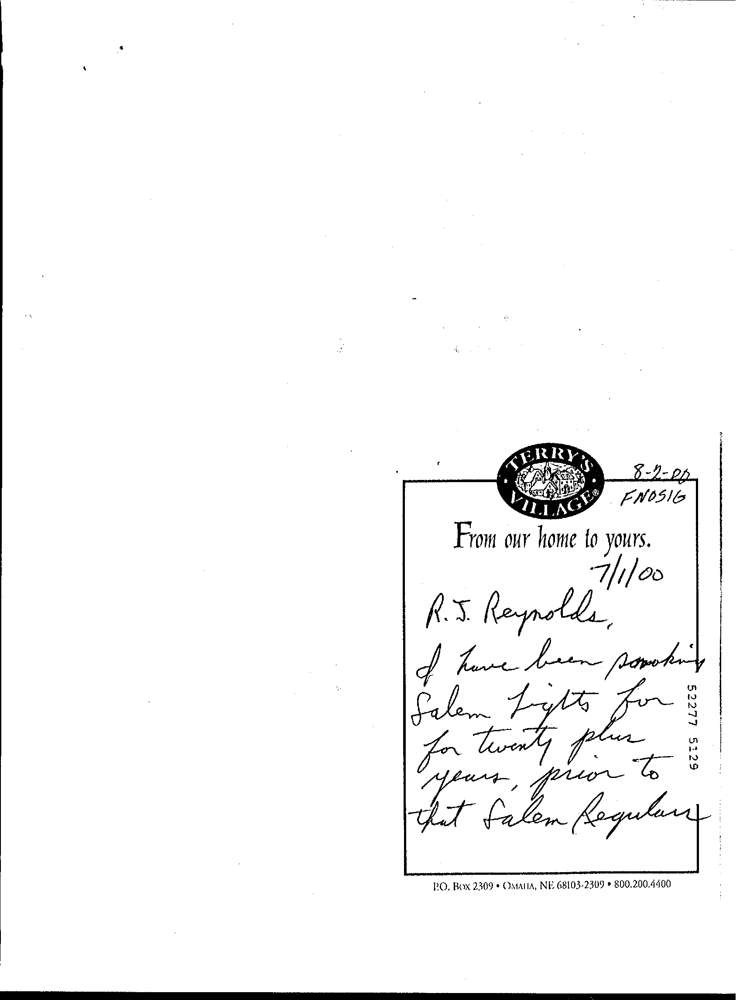 TERRY'S
VILLAGE®
8-2-00
FN0516
From our home to yours.
7/1/00
R.J. Reynolds,
I have been smoking
Salem Lights for
for twenty plus
years, prior to
that Salem Regulars
52277 5129
P.O. Box 2309 • Omaha, NE 68103-2309 • 800.200.4400